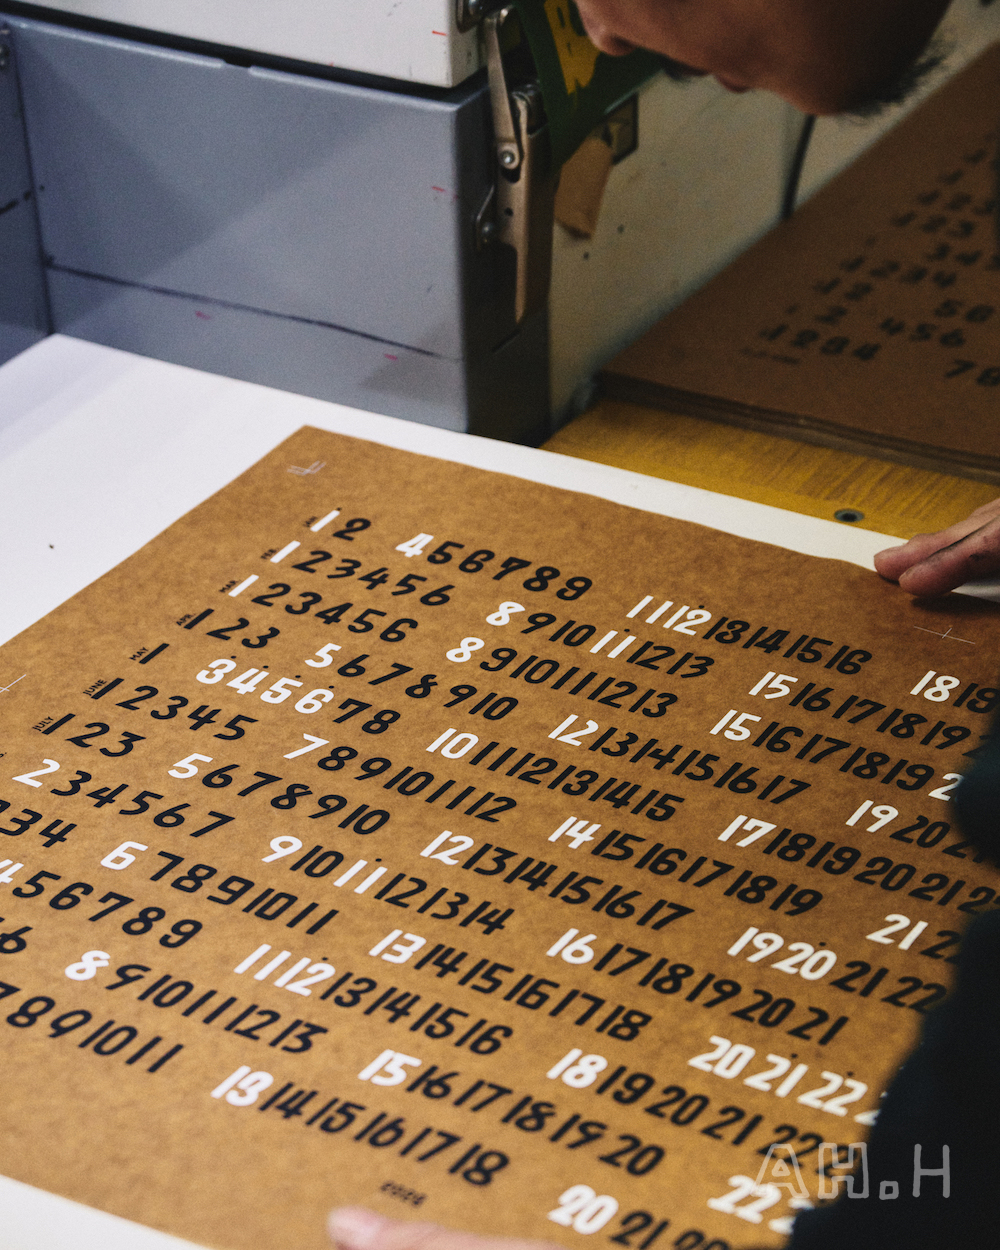 JAN 1 2 4 5 6 7 8 9 11 12 13 14 15 16 18 19
FEB 1 2 3 4 5 6 8 9 10 11 12 13 15 16 17 18 19
MAR 1 2 3 4 5 6 8 9 10 11 12 13 15 16 17 18 19 2
APR 1 2 3 5 6 7 8 9 10 12 13 14 15 16 17 19 20 21
MAY 1 3 4 5 6 7 8 10 11 12 13 14 15 17 18 19 20 21 22
JUNE 1 2 3 4 5 7 8 9 10 11 12 14 15 16 17 18 19 21 22
JULY 1 2 3 5 6 7 8 9 10 12 13 14 15 16 17 19 20 21 22
2 3 4 5 6 7 9 10 11 12 13 14 16 17 18 19 20 21
3 4 6 7 8 9 10 11 13 14 15 16 17 18 20 21 22
4 5 6 7 8 9 11 12 13 14 15 16 18 19 20 21 22
6 8 9 10 11 12 13 15 16 17 18 19 20 22
7 8 9 10 11 13 14 15 16 17 18 20 21
2026
AH.H